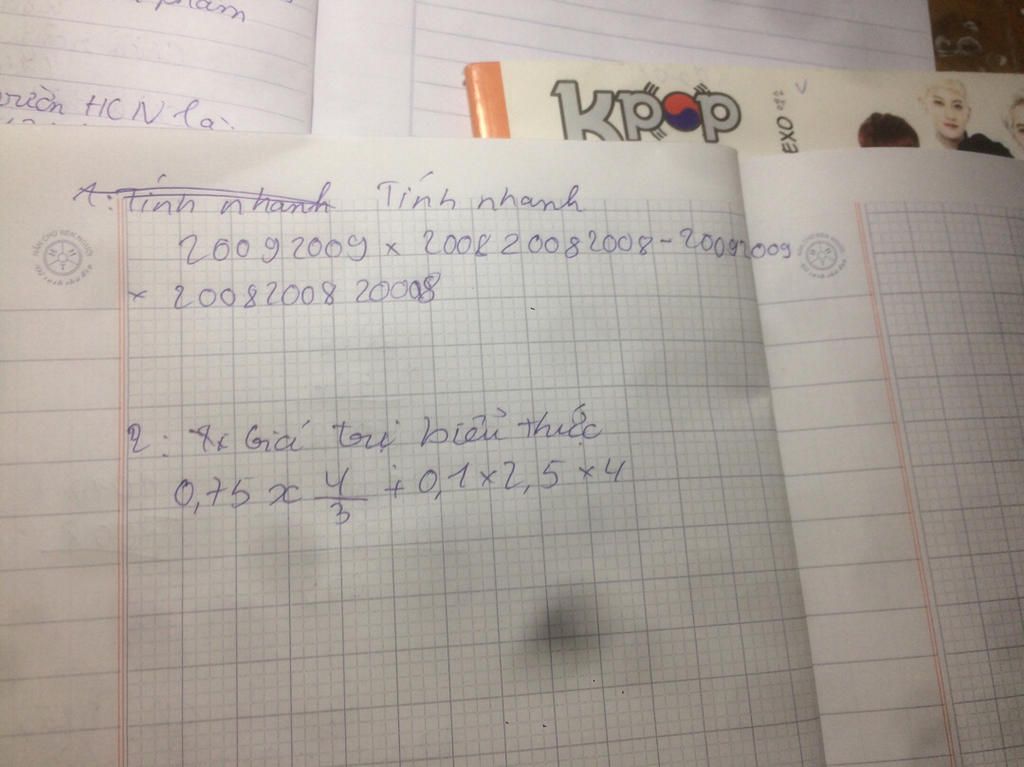 phẩm
HCN là
KPOP
EXO
1: Tính nhanh Tính nhanh
20092009 x 200820082008 - 20092009
x 2008200820008
2: Giá trị biểu thức
0,75 x 4/3 + 0,1 x 2,5 x 4